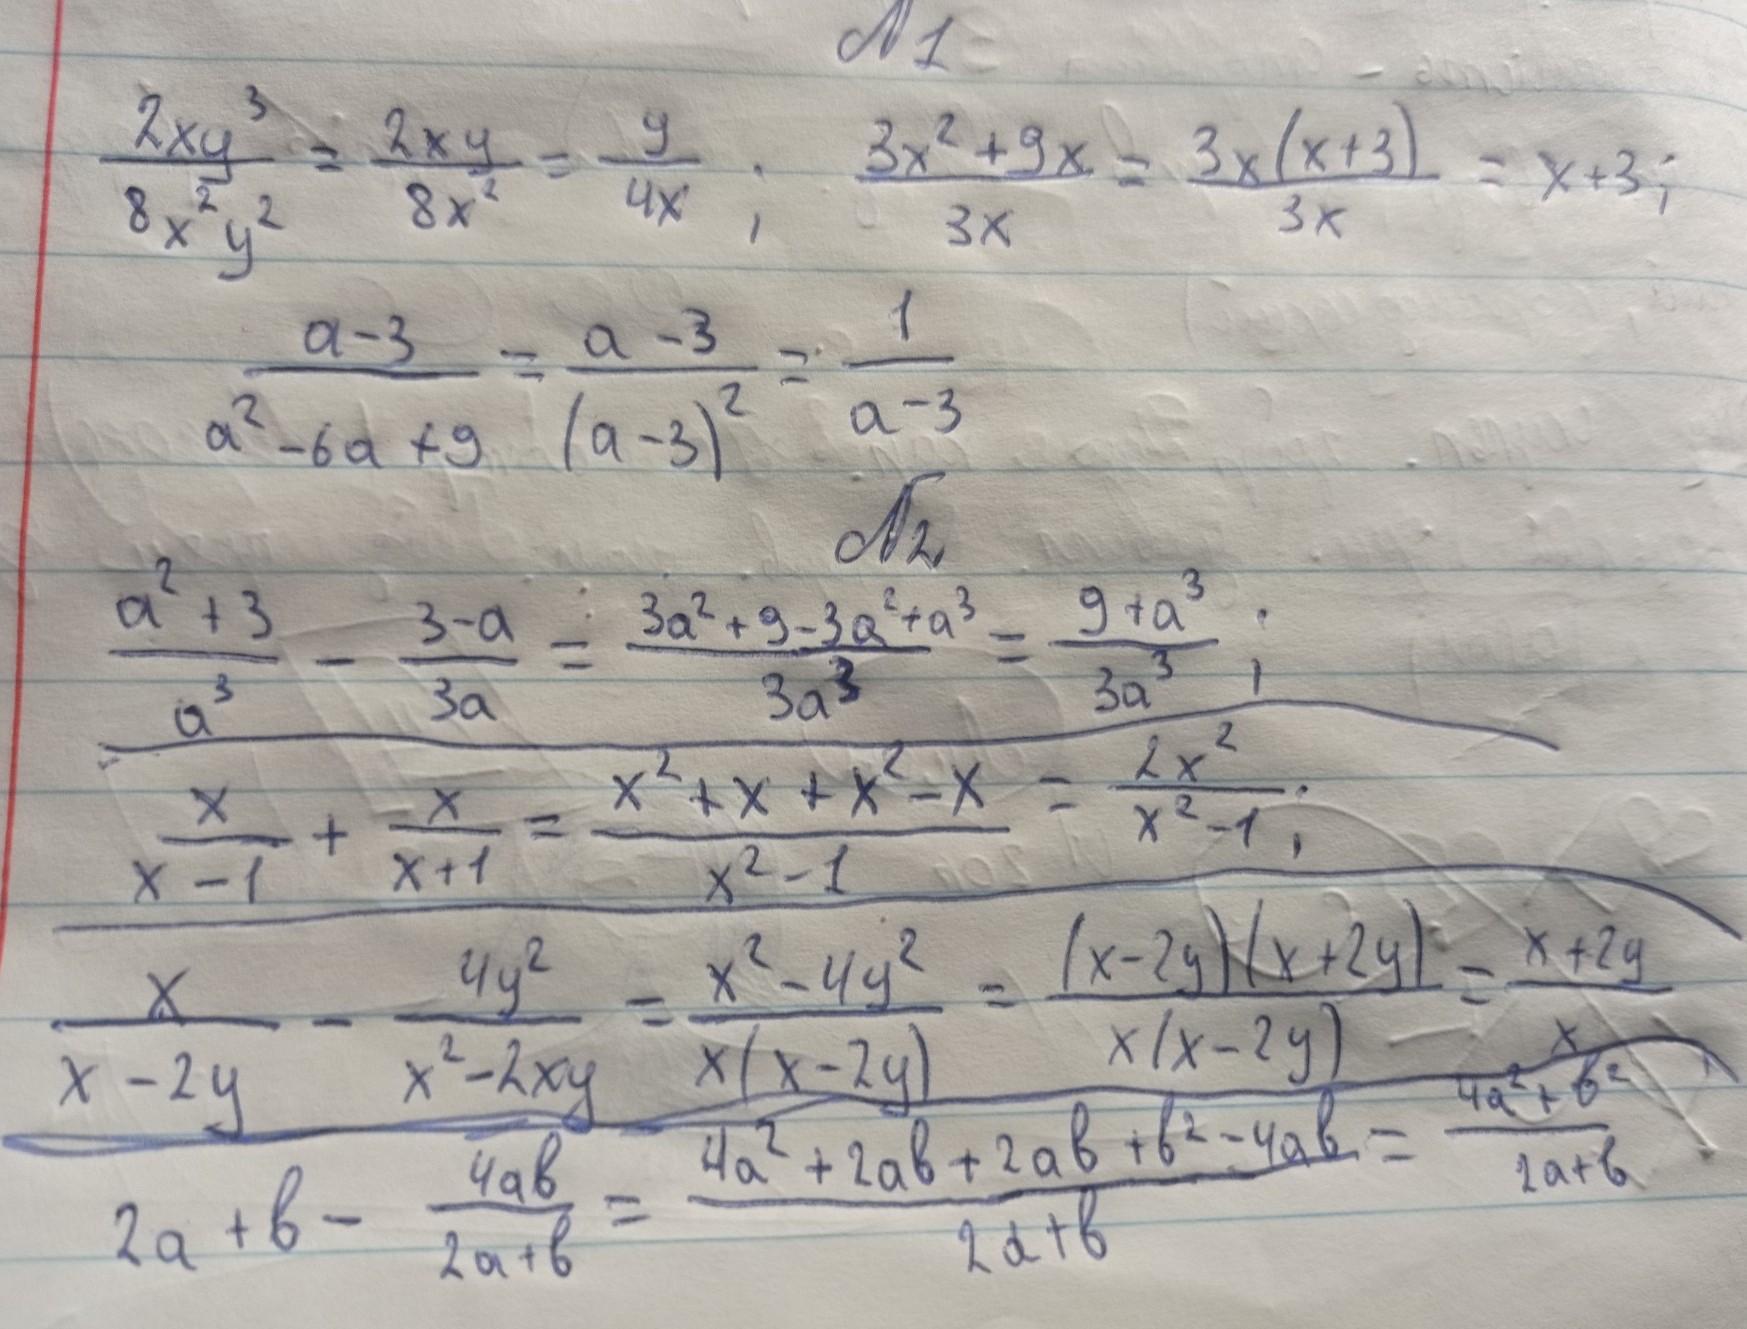 №1
2xy³/8x²y² = 2xy/8x² = y/4x ; 3x²+9x/3x = 3x(x+3)/3x = x+3;
a-3/a²-6a+9 = a-3/(a-3)² = 1/a-3
№2
a²+3/a³ - 3-a/3a = 3a²+9-3a²+a³/3a³ = 9+a³/3a³ ;
x/x-1 + x/x+1 = x²+x+x²-x/x²-1 = 2x²/x²-1 ;
x/x-2y - 4y²/x²-2xy = x²-4y²/x(x-2y) = (x-2y)(x+2y)/x(x-2y) = x+2y/x
2a+b - 4ab/2a+b = 4a²+2ab+2ab+b²-4ab/2a+b = 4a²+b²/2a+b